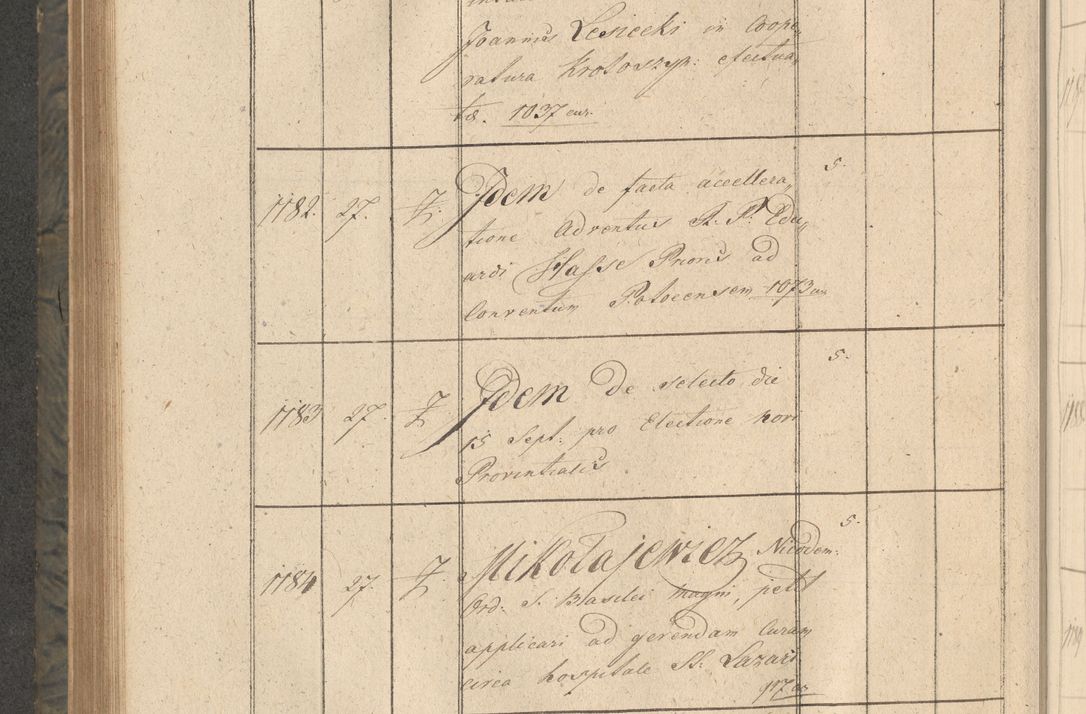 Joannis Lesiecki in Coope„
ratura Krotoszyn: efectua„
ta. 1037 eur.
1182. 27. Z. Idem de facta accellera„ 5.
tione Adventus R. P. Edu„
ardi Hasse Prioris ad
Conventum Potocensem 1073 eur
1183 27 Z Idem de selecto die 5.
15 Sept: pro Electione novi
Provincialis
1184 27. Z. Mikołajewicz Nicodem: 5.
Ord: S. Basilei Magni, petit
applicari ad gerendam Curam
circa hospitale SS: Lazari